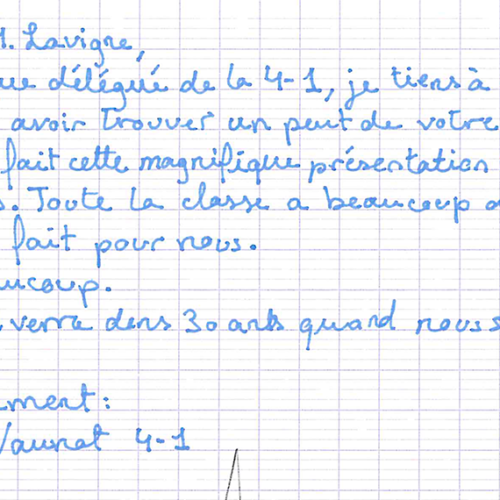 M. Lavigne,
ue délégué de la 4-1, je tiens à
avoir trouver un peut de votre
fait cette magnifique présentation
s. Toute la classe a beaucoup a
fait pour nous.
ucoup.
verra dans 30 ans quand nous s
ment:
4-1